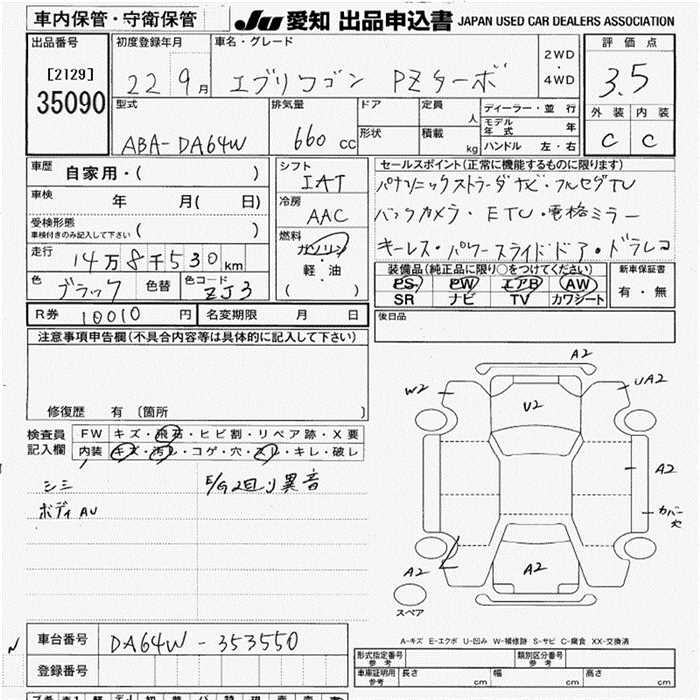 車内保管・守衛保管
JU 愛知 出品申込書 JAPAN USED CAR DEALERS ASSOCIATION
出品番号
[2129]
35090
初度登録年月
22 9月
車名・グレード
エブリワゴン PZターボ
2WD
・
4WD
評価点
3.5
外装 内装
C C
型式
ABA-DA64W
排気量
660 CC
ドア
形状
定員
人
積載
kg
ディーラー・並行
モデル年式 年
ハンドル 左・右
車歴
自家用・( )
車検
年 月( 日)
受検形態
車検付きのみ記入して下さい ( )
走行
14万8千530km
色
ブラック
色替
色コード
ZJ3
シフト
IAT
冷房
AAC
燃料
ガソリン
・
軽・油
( )
セールスポイント(正常に機能するものに限ります)
パナソニックストラーダナビ・フルセグTV
バックカメラ・ETC・電格ミラー
キーレス・パワースライドドア・ドラレコ
装備品(純正品に限り○をつけてください)
PS PW エアB AW
SR ナビ TV カワシート
新車保証書
有・無
後日品
R券 10010 円
名変期限 月 日
注意事項申告欄(不具合内容等は具体的に記入して下さい)
修復歴 有 〔箇所 〕
検査員
記入欄
FW キズ・飛石・ヒビ割・リペア跡・X要
内装 キズ・汚レ・コゲ・穴・スレ・キレ・破レ
シミ
ボディAU
E/G2回り異音
A2
W2
UA2
U2
A2
カバー欠
A2
A2
スペア
A-キズ E-エクボ U-凹み W-補修跡 S-サビ C-腐食 XX-交換済
車台番号
DA64W-353550
登録番号
形式指定番号
参考
類別区分番号
参考
車庫証明用
参考
長さ cm
幅 cm
高さ cm